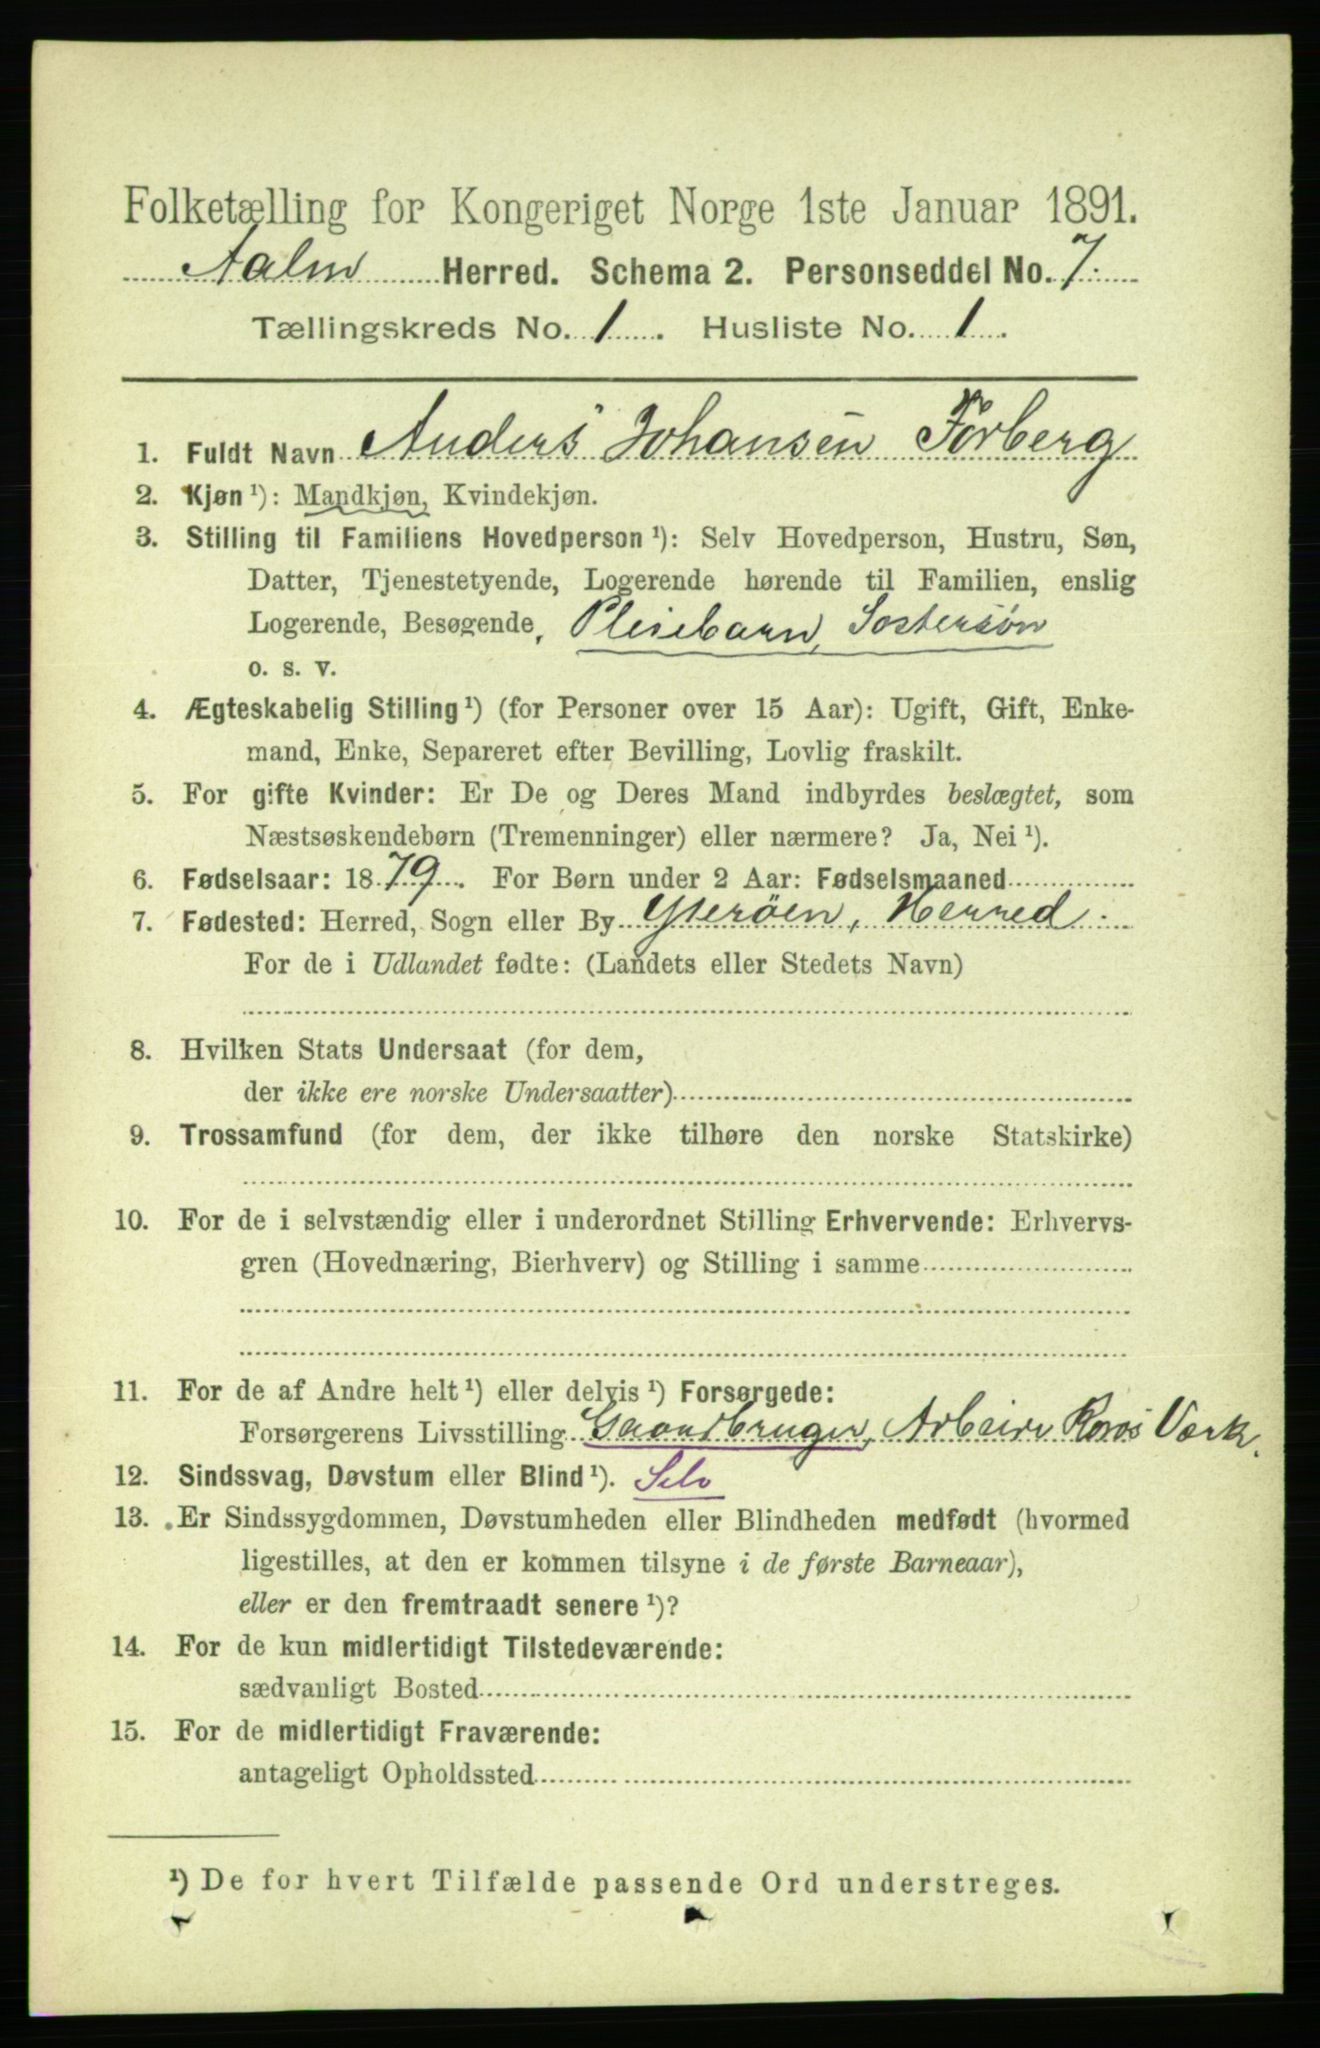 Folketælling for Kongeriget Norge 1ste Januar 1891.
Aalen Herred. Schema 2. Personseddel No. 7.
Tællingskreds No. 1. Husliste No. 1.
1. Fuldt Navn Anders Johansen Forberg
2. Kjøn ¹): Mandkjøn, Kvindekjøn.
3. Stilling til Familiens Hovedperson ¹): Selv Hovedperson, Hustru, Søn,
Datter, Tjenestetyende, Logerende hørende til Familien, enslig
Logerende, Besøgende, Pleiebarn, Søstersøn
o. s. v.
4. Ægteskabelig Stilling ¹) (for Personer over 15 Aar): Ugift, Gift, Enke-
mand, Enke, Separeret efter Bevilling, Lovlig fraskilt.
5. For gifte Kvinder: Er De og Deres Mand indbyrdes beslægtet, som
Næstsøskendebørn (Tremenninger) eller nærmere? Ja, Nei ¹).
6. Fødselsaar: 1879. For Børn under 2 Aar: Fødselsmaaned
7. Fødested: Herred, Sogn eller By Yterøen, Herred.
For de i Udlandet fødte: (Landets eller Stedets Navn)
8. Hvilken Stats Undersaat (for dem,
der ikke ere norske Undersaatter)
9. Trossamfund (for dem, der ikke tilhøre den norske Statskirke)
10. For de i selvstændig eller i underordnet Stilling Erhvervende: Erhvervs-
gren (Hovednæring, Bierhverv) og Stilling i samme
11. For de af Andre helt ¹) eller delvis ¹) Forsørgede:
Forsørgerens Livsstilling Gaardbruger, Arbeider Røros Værk.
12. Sindssvag, Døvstum eller Blind ¹). Selv
13. Er Sindssygdommen, Døvstumheden eller Blindheden medfødt (hvormed
ligestilles, at den er kommen tilsyne i de første Barneaar),
eller er den fremtraadt senere ¹)?
14. For de kun midlertidigt Tilstedeværende:
sædvanligt Bosted
15. For de midlertidigt Fraværende:
antageligt Opholdssted
¹) De for hvert Tilfælde passende Ord understreges.